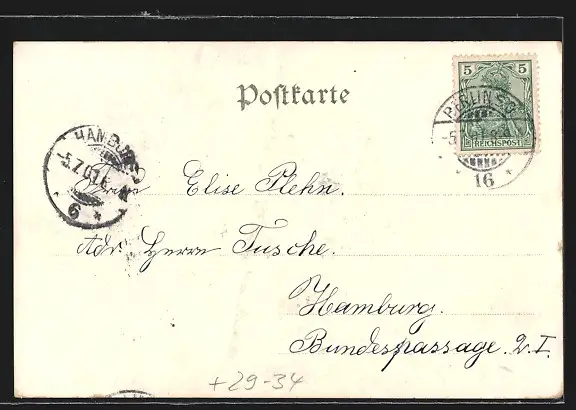 Postkarte
5 5
REICHSPOST
BERLIN S.O.
16
HAMBURG
-5.7.01.
6 *
Frau Elise Plehn.
Adr. Herrn Tusche.
Hamburg.
Bundespassage. 2. I.
+29-34